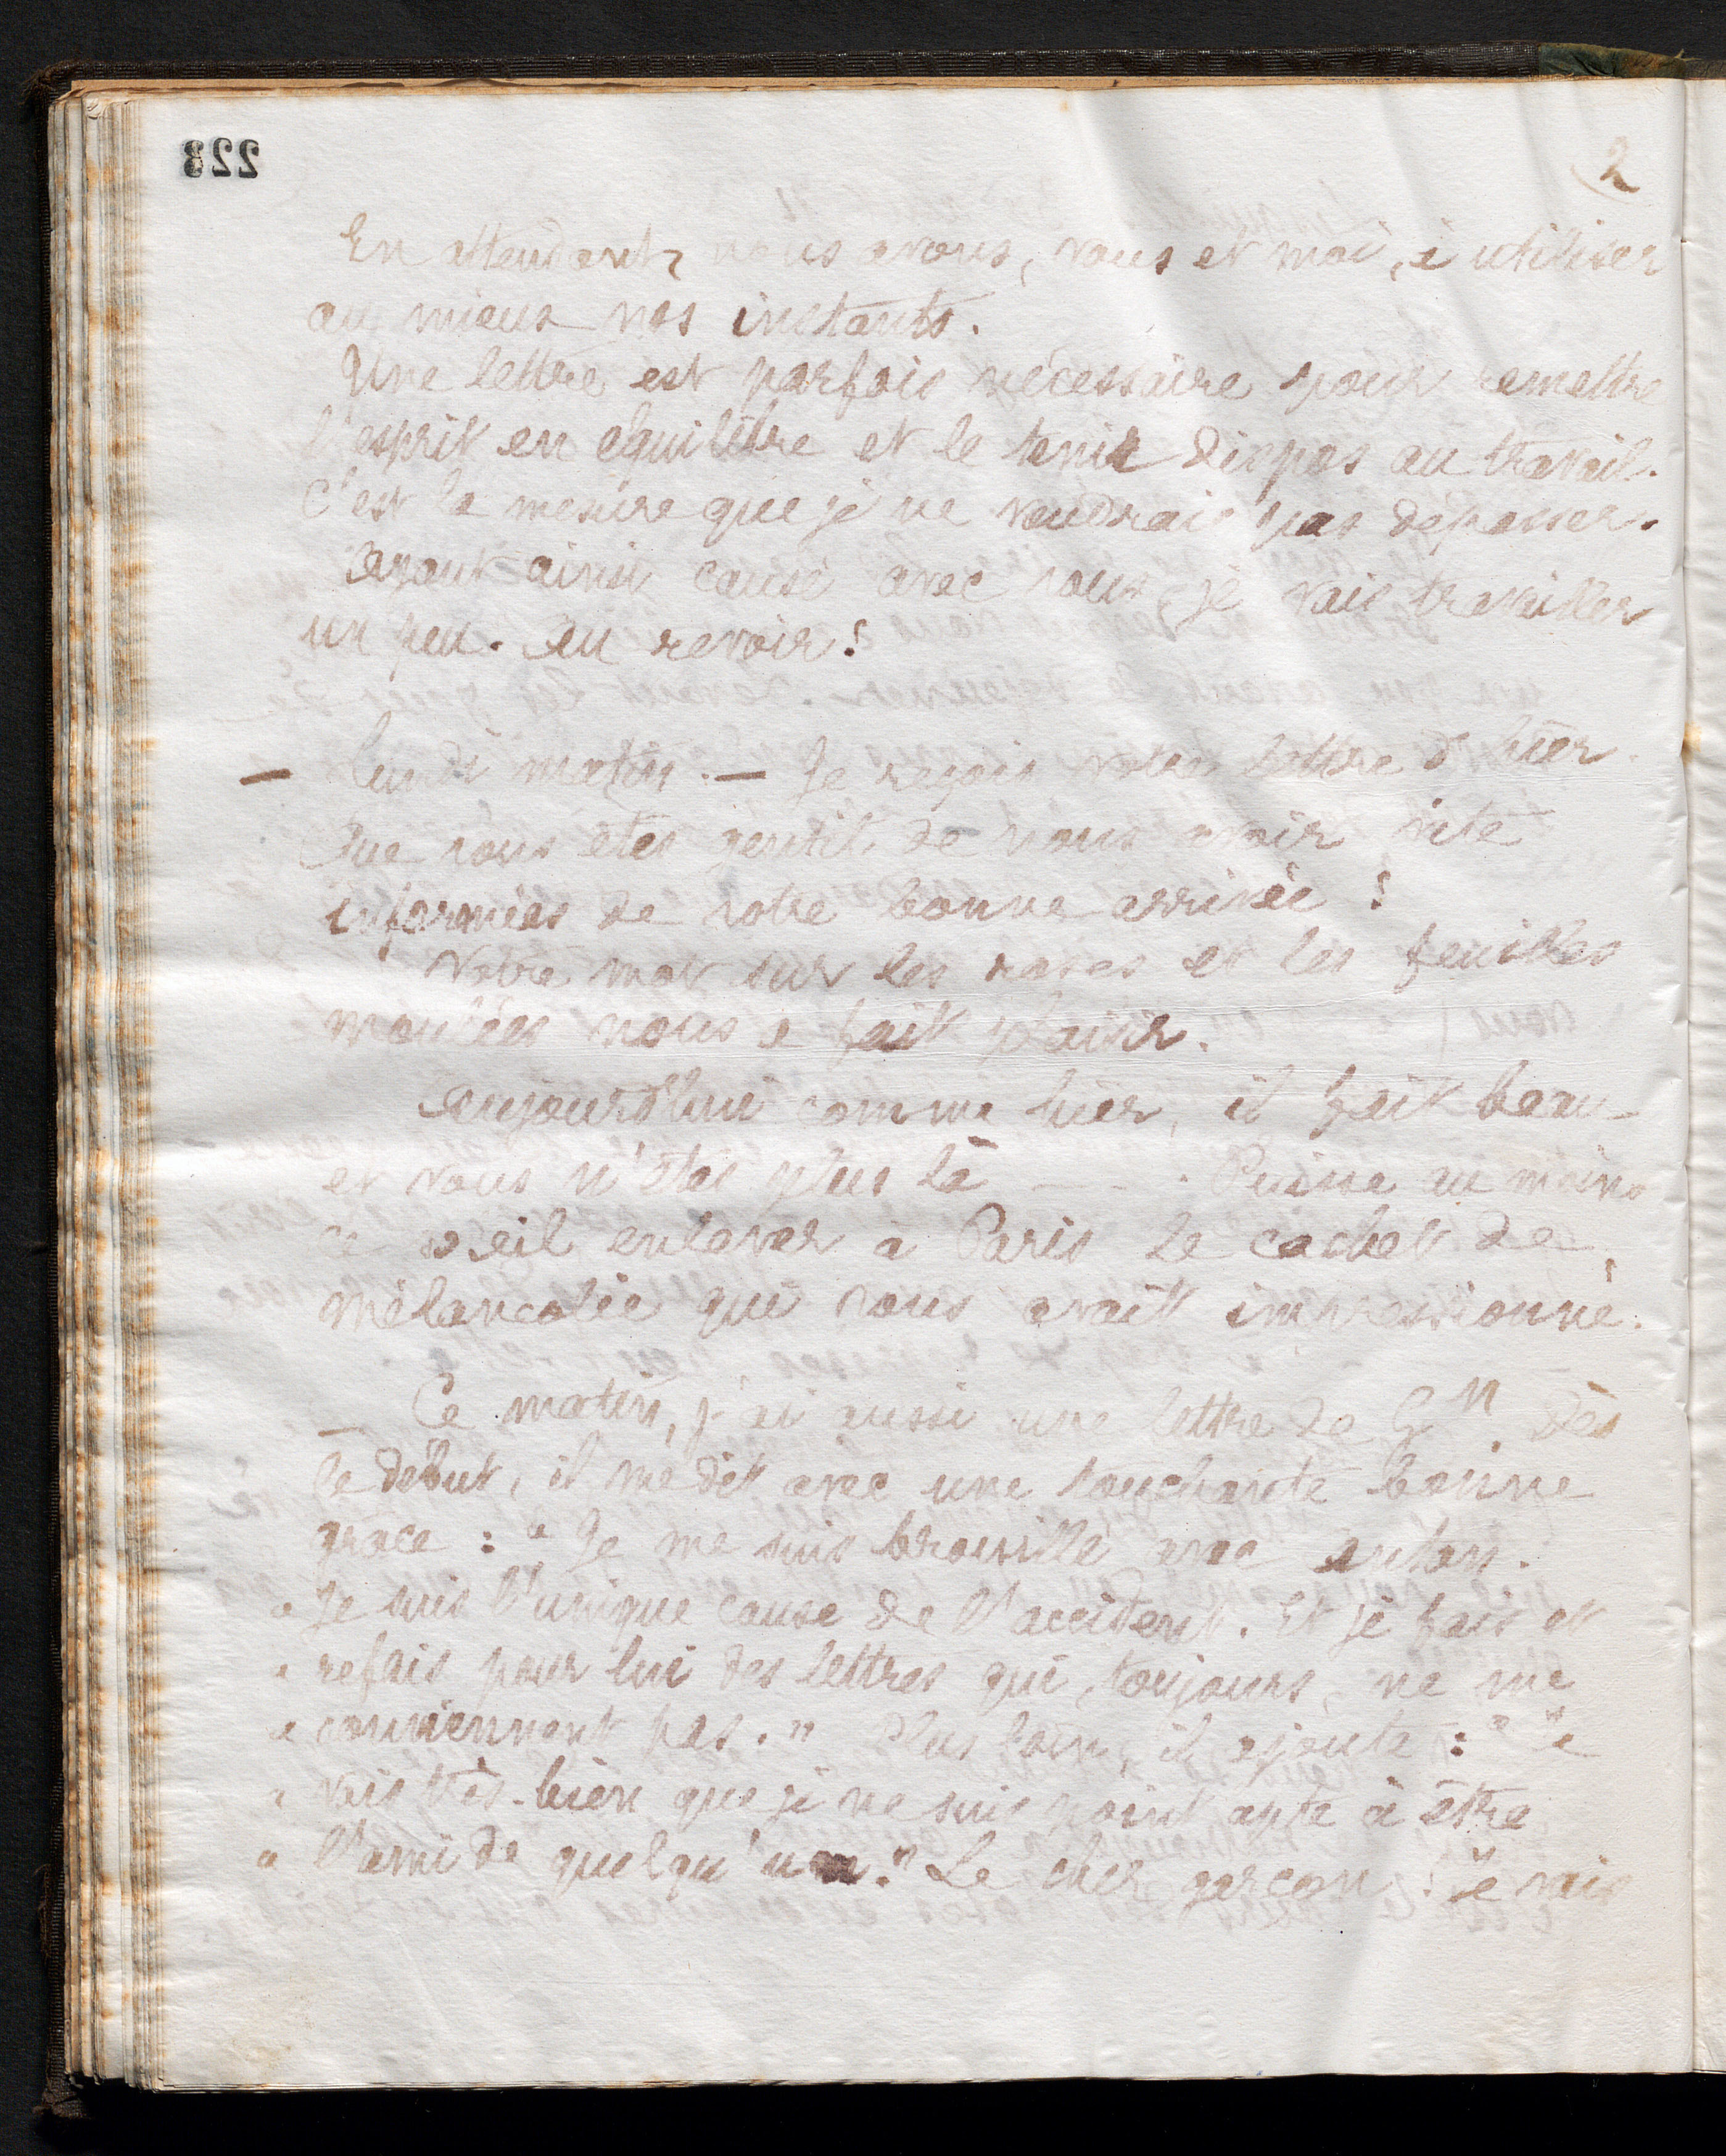 223
2
En attendant, nous avons, vous et moi, à utiliser
au mieux nos instants.
Une lettre est parfois nécessaire pour remettre
l'esprit en équilibre et le tenir dispos au travail.
C'est la mesure que je ne voudrais pas dépasser.
Ayant ainsi causé avec vous, je vais travailler
un peu. Au revoir !
— Lundi matin. — Je reçois votre lettre d'hier.
Que vous êtes gentil de nous avoir vite
informées de votre bonne arrivée !
Votre mot sur les roses et les feuilles
moulées nous a fait plaisir.
Aujourd'hui comme hier, il fait beau
et vous n'êtes plus là — . Puisse au moins
ce soleil enlever à Paris le cachet de
mélancolie qui vous avait impressionné.
_ Ce matin, j'ai aussi une lettre de Gn. Dès
le début, il me dit avec une touchante bonne
grâce : " Je me suis brouillé avec
" Je suis l'unique cause de l'accident. Et je fais et
" refais pour lui des lettres qui, toujours, ne me
" conviennent pas. " Plus loin, il ajoute : " Je
" vois très-bien que je ne suis point apte à être
" l'ami de quelqu'un. " Le cher garçon ! Je vais